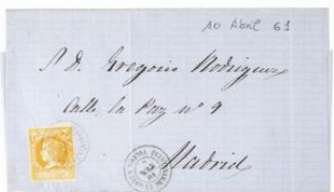 10 Abril 61
S. D. Gregorio Rodriguez
Calle la Paz nº 9
Madrid